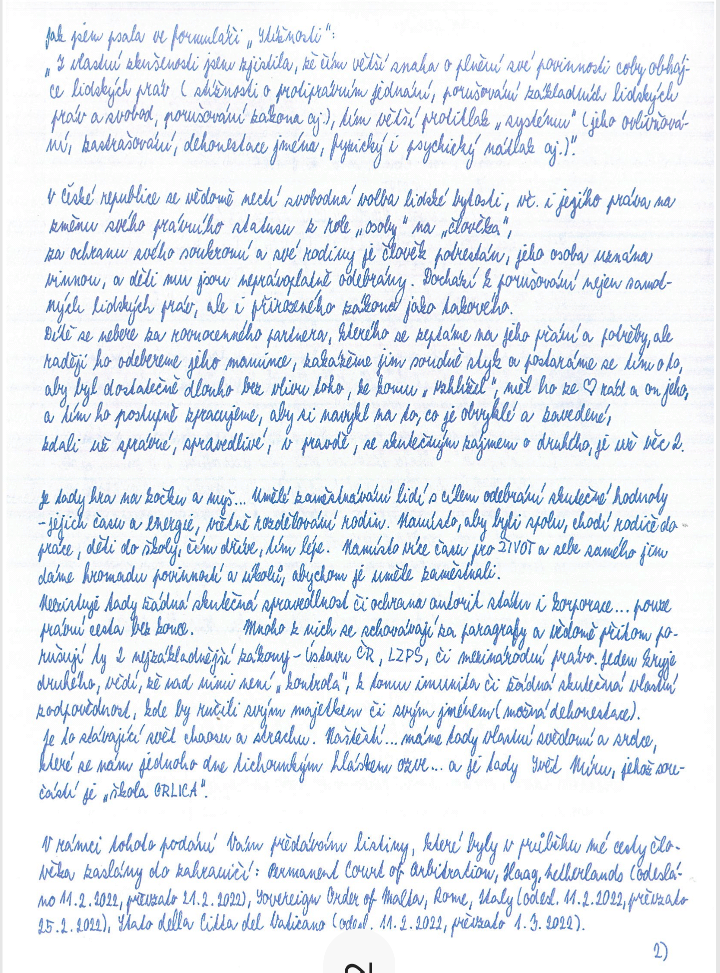 Jak jsem psala ve formuláři „Stížnosti":
„Z vlastní zkušenosti jsem zjistila, že čím větší snaha o plnění své povinnosti coby obháj-
ce lidských práv (stížnosti o protiprávním jednání, porušování základních lidských
práv a svobod, porušování zákona aj.), tím větší protitlak „systému" (jeho ovlivňová-
ní, zastrašování, dehonestace jména, fyzický i psychický nátlak aj.)".
V České republice se vědomě nectí svobodná volba lidské bytosti, vč. i jejího práva na
změnu svého právního statusu z role „osoby" na „člověka",
za ochranu svého soukromí a své rodiny je člověk potrestán, jeho osoba uznána
vinnou, a děti mu jsou neprávoplatně odebrány. Dochází k porušování nejen samot-
ných lidských práv, ale i přirozeného zákona jako takového.
Dítě se nebere za rovnocenného partnera, kterého se zeptáme na jeho přání a potřeby, ale
raději ho odebereme jeho mamince, zakážeme jim soudně styk a postaráme se tím o to,
aby byl dostatečně dlouho bez vlivu toho, ke komu „vzhlížel", měl ho ze ♡ rád a on jeho,
a tím ho postupně zpracujeme, aby si navykl na to, co je obvyklé a zavedené,
zdali už správné, spravedlivé, v pravdě, se skutečným zájmem o druhého, je už věc 2.
Je tady hra na kočku a myš... Umělé zaměstnávání lidí s cílem odebrání skutečné hodnoty
- jejich času a energie, včetně rozdělování rodin. Namísto, aby byli spolu, chodí rodiče do
práce, děti do školy, čím dříve, tím lépe. Namísto více času pro ŽIVOT a sebe samého jim
dáme hromadu povinností a úkolů, abychom je uměle zaměstnali.
Neexistuje tady žádná skutečná spravedlnost či ochrana autorit státu i korporace... pouze
právní cesta bez konce. Mnoho z nich se schovávají za paragrafy a vědomě přitom po-
rušují ty 2 nejzákladnější zákony - Ústavu ČR, LZPS, či mezinárodní právo. Jeden kryje
druhého, vědí, že nad nimi není „kontrola", k tomu imunita či žádná skutečná vlastní
zodpovědnost, kde by ručili svým majetkem či svým jménem (možná dehonestace).
Je to stávající svět chaosu a strachu. Naštěstí... máme tady vlastní svědomí a srdce,
které se nám jednoho dne tichounkým hláskem ozve... a je tady Svět Míru, jehož sou-
částí je „škola ORLICA".
V rámci tohoto podání Vám předávám listiny, které byly v průběhu mé cesty člo-
věka zaslány do zahraničí: Permanent Court of Arbitration, Haag, Netherlands (odeslá-
no 11.2.2022, převzato 21.2.2022), Sovereign Order of Malta, Rome, Italy (odesl. 11.2.2022, převzato
25.2.2022), Stato della Citta del Vaticano (odesl. 11.2.2022, převzato 1.3.2022).
2)
2